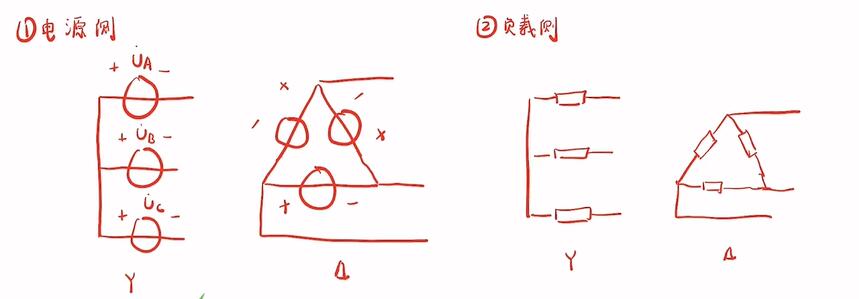 ①电源侧
+ U̇A −
+ U̇B −
+ U̇C −
Y
+ −
Δ
②负载侧
Y
Δ